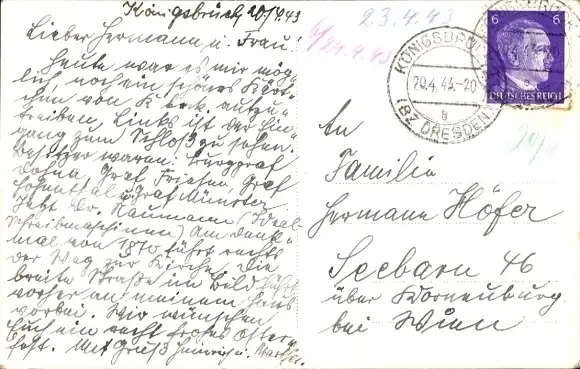 Königsbrück 20/4.43
Lieber Hermann u. Frau!
Heute war es mir mög-
lich, noch ein schönes Kärt-
chen von K. aufzu-
treiben. Links ist der Ein-
gang zum Schloß zu sehen.
Besitzer waren: Burggraf
Dohna, Graf Friesen, Graf
Hohenthal, Graf Münster.
Jetzt Dr. Naumann (Ideal
Schreibmaschinen) Am Denk-
mal von 1870 führt rechts
der Weg zur Kirche. Die
breite Straße im Bild führt
vorher an meinem Haus
vorbei. Wir wünschen
Euch ein recht frohes Oster-
fest. Mit Gruß Heinrich u. Martha.
23.4.43
24.4.43
KÖNIGSBRÜCK
20.4.43.-20
b
(BZ DRESDEN)
6 6
DEUTSCHES REICH
An
Familie
Hermann Höfer
Seebarn 46
über Korneuburg
bei Wien